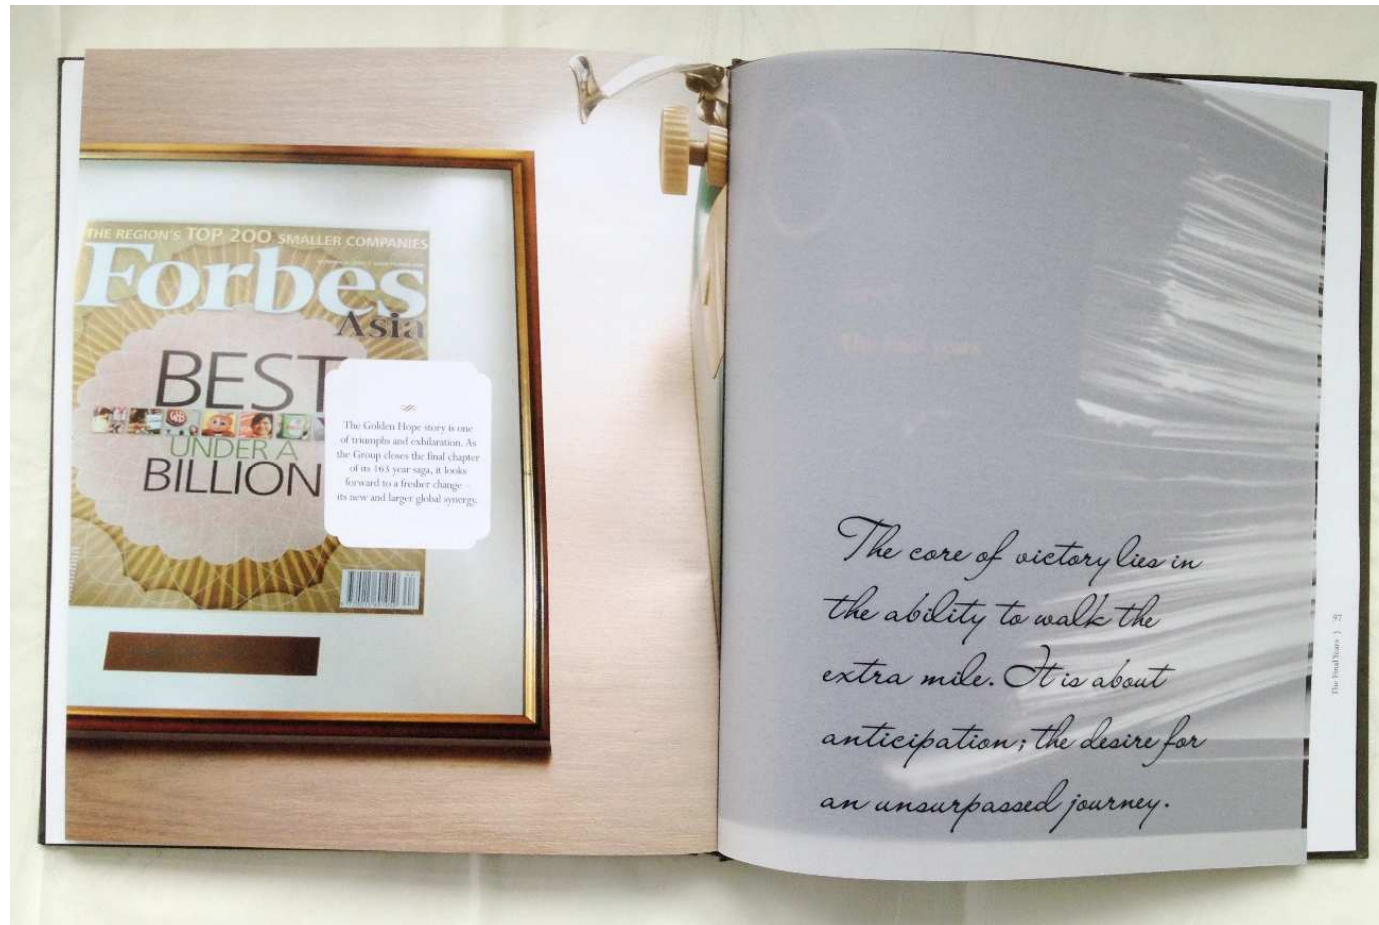 THE REGION'S TOP 200 SMALLER COMPANIES
Forbes
Asia
BEST
UNDER A
BILLION
The Golden Hope story is one
of triumphs and exhilaration. As
the Group closes the final chapter
of its 163 year saga, it looks
forward to a fresher change –
its new and larger global synergy.
The core of victory lies in
the ability to walk the
extra mile. It is about
anticipation; the desire for
an unsurpassed journey.
The Final Years | 97